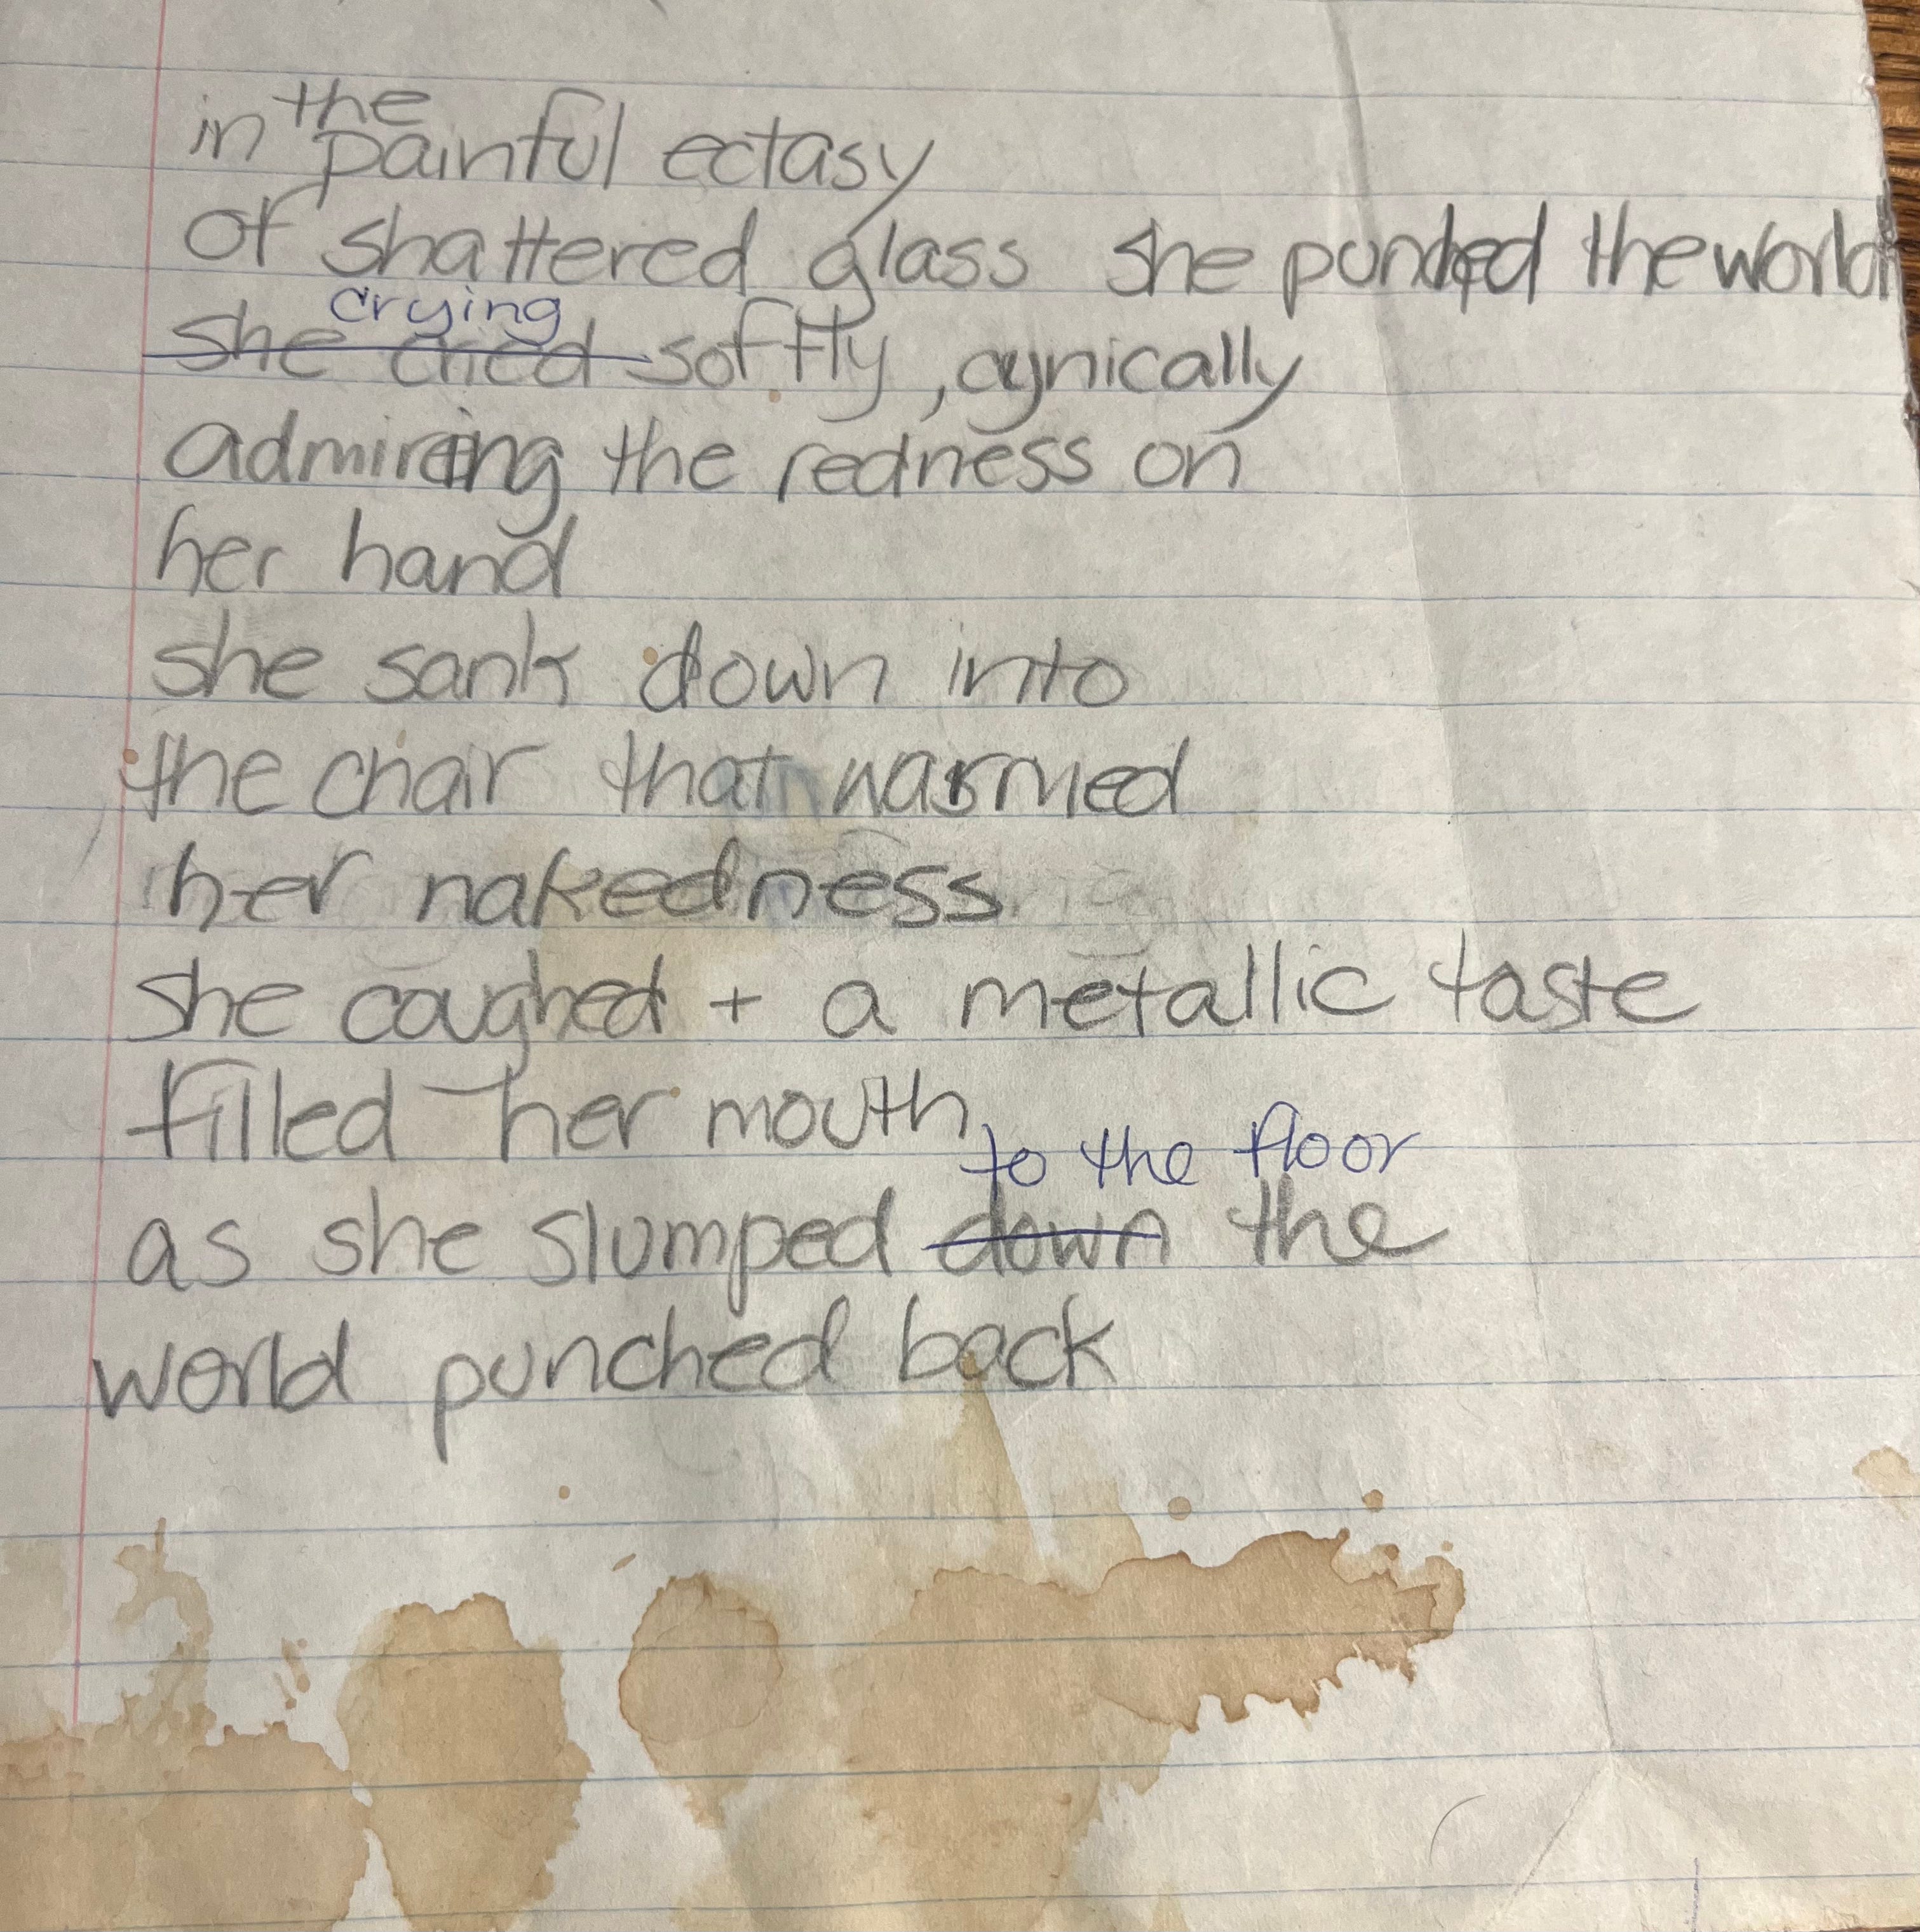 in the painful ectasy
of shattered glass she punched the world
crying
she cried softly, cynically
admiring the redness on
her hand
she sank down into
the chair that warmed
her nakedness
she coughed + a metallic taste
filled her mouth
to the floor
as she slumped down the
world punched back